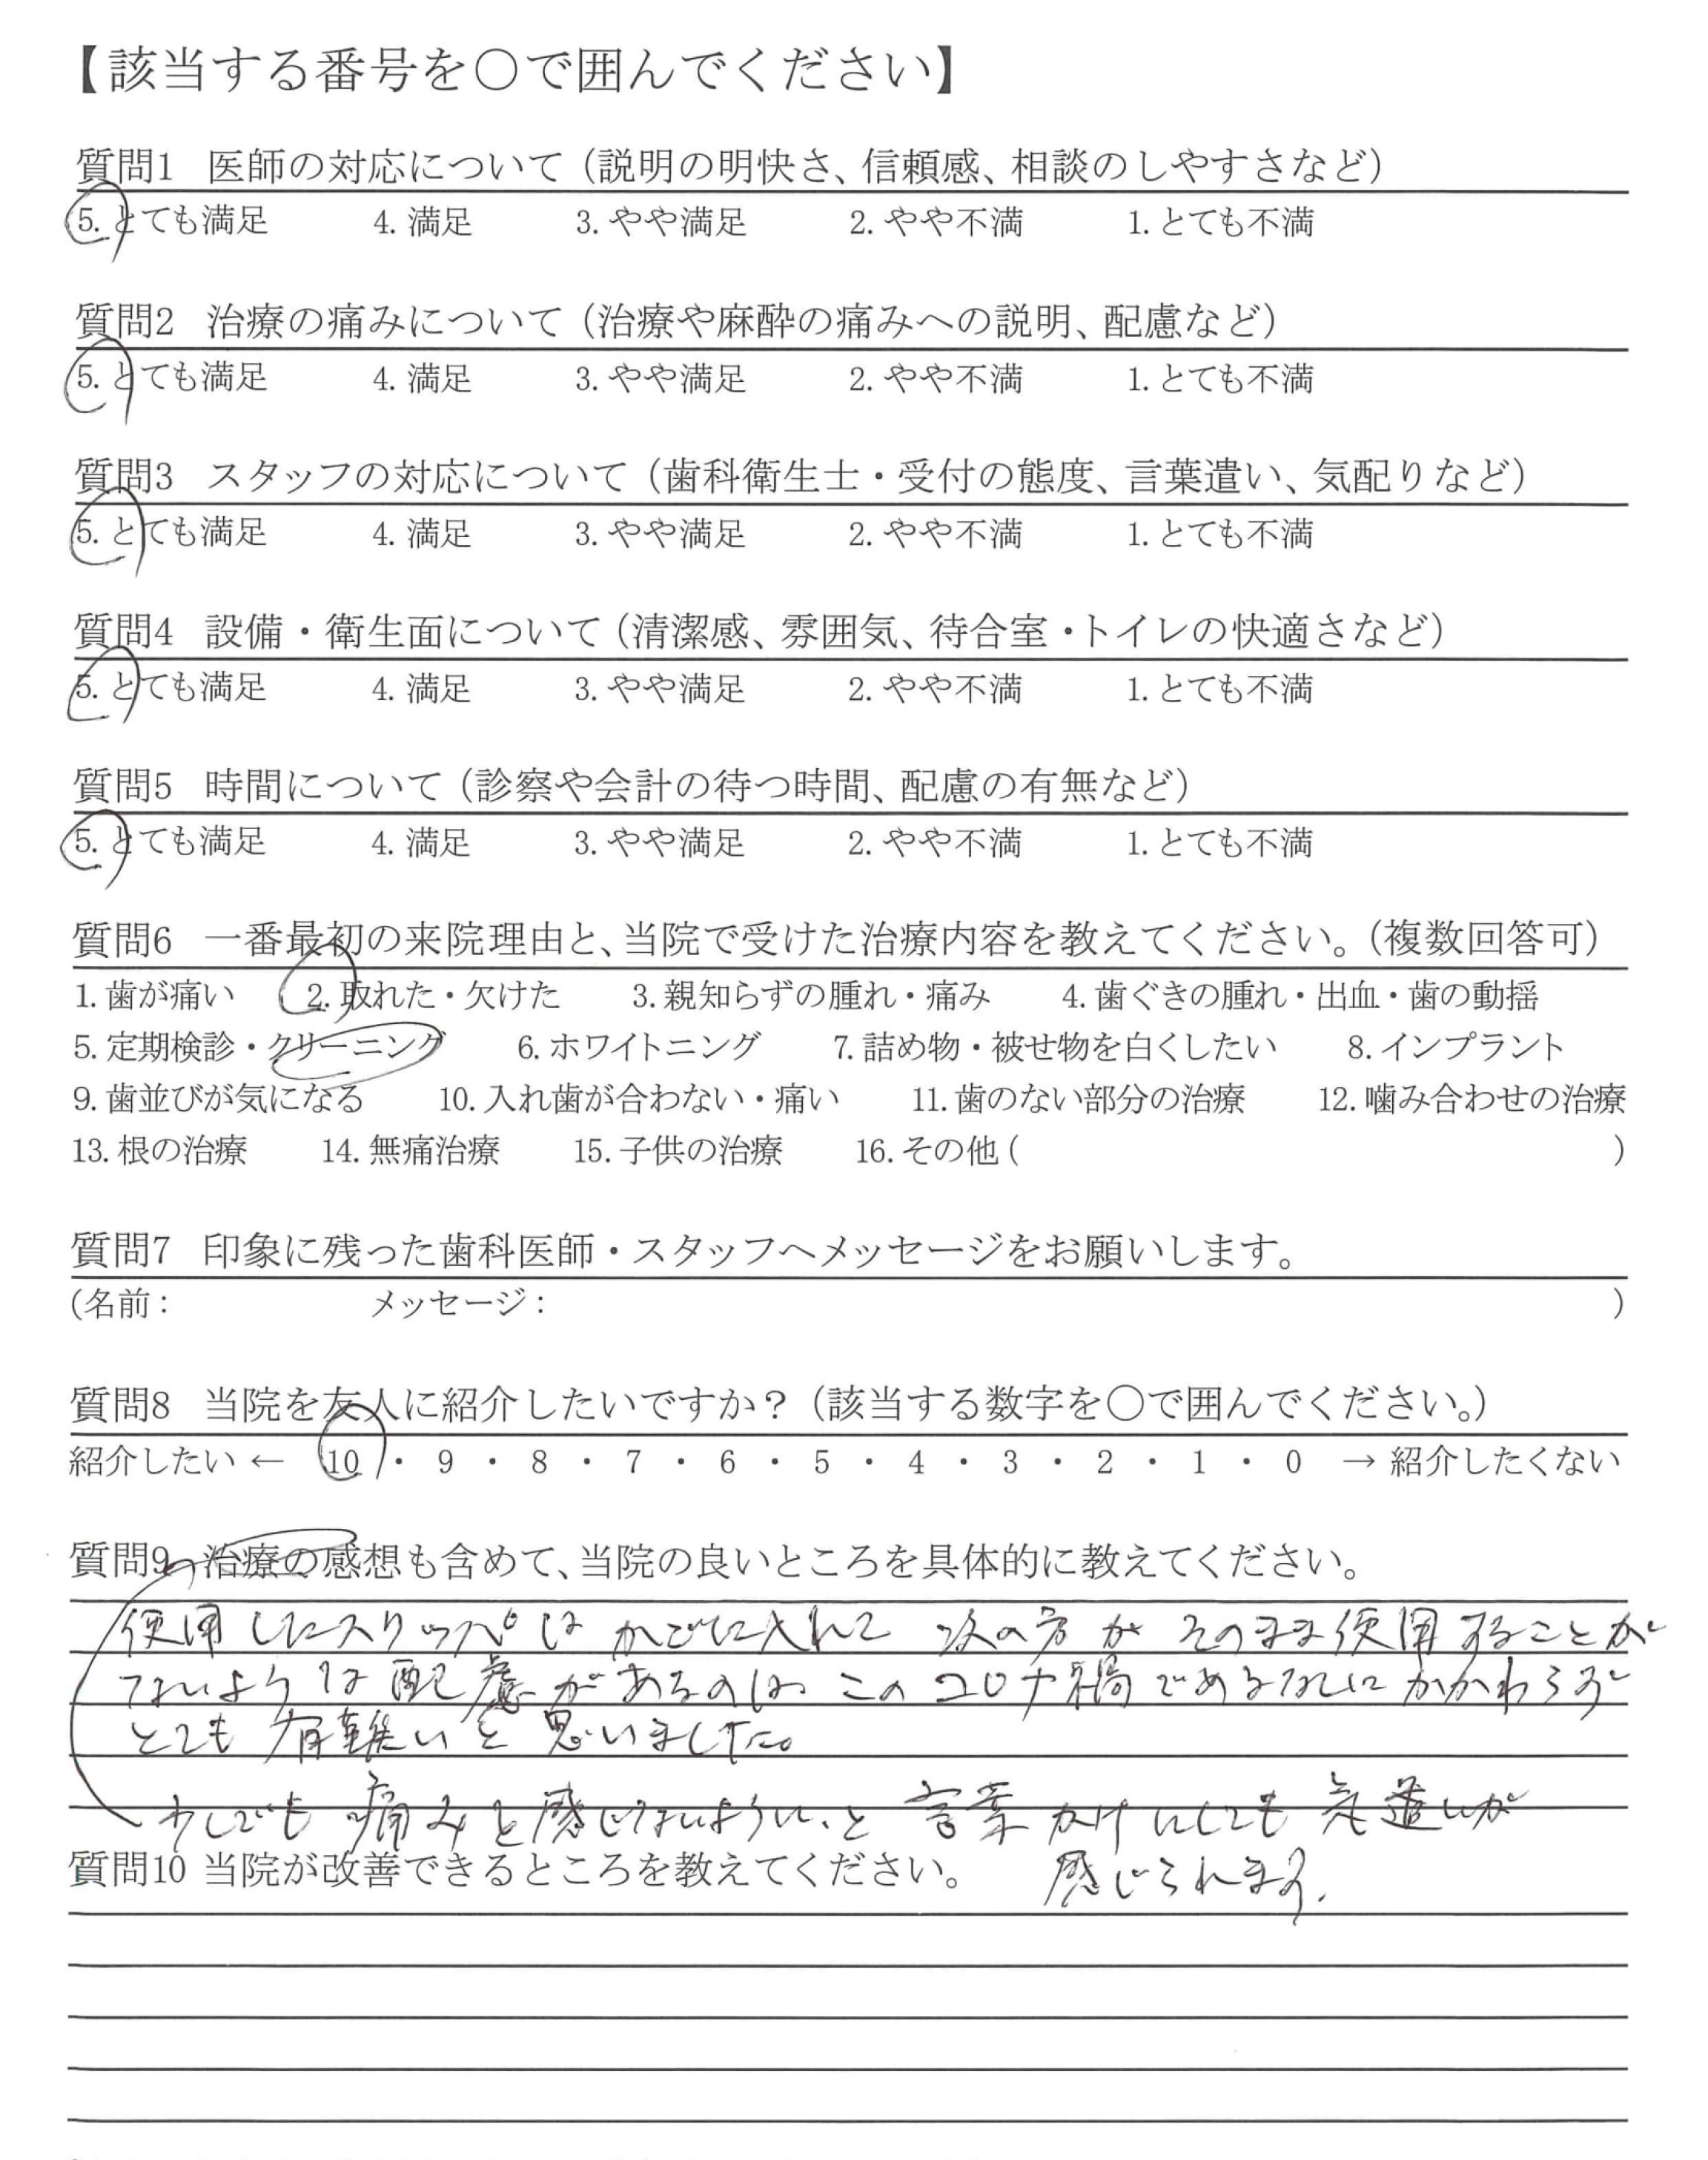 【該当する番号を〇で囲んでください】
質問1 医師の対応について（説明の明快さ、信頼感、相談のしやすさなど）
5. とても満足 4. 満足 3. やや満足 2. やや不満 1. とても不満
質問2 治療の痛みについて（治療や麻酔の痛みへの説明、配慮など）
5. とても満足 4. 満足 3. やや満足 2. やや不満 1. とても不満
質問3 スタッフの対応について（歯科衛生士・受付の態度、言葉遣い、気配りなど）
5. とても満足 4. 満足 3. やや満足 2. やや不満 1. とても不満
質問4 設備・衛生面について（清潔感、雰囲気、待合室・トイレの快適さなど）
5. とても満足 4. 満足 3. やや満足 2. やや不満 1. とても不満
質問5 時間について（診察や会計の待つ時間、配慮の有無など）
5. とても満足 4. 満足 3. やや満足 2. やや不満 1. とても不満
質問6 一番最初の来院理由と、当院で受けた治療内容を教えてください。（複数回答可）
1. 歯が痛い 2. 取れた・欠けた 3. 親知らずの腫れ・痛み 4. 歯ぐきの腫れ・出血・歯の動揺
5. 定期検診・クリーニング 6. ホワイトニング 7. 詰め物・被せ物を白くしたい 8. インプラント
9. 歯並びが気になる 10. 入れ歯が合わない・痛い 11. 歯のない部分の治療 12. 噛み合わせの治療
13. 根の治療 14. 無痛治療 15. 子供の治療 16. その他 ( )
質問7 印象に残った歯科医師・スタッフへメッセージをお願いします。
(名前： メッセージ： )
質問8 当院を友人に紹介したいですか？（該当する数字を〇で囲んでください。）
紹介したい ← 10 ・ 9 ・ 8 ・ 7 ・ 6 ・ 5 ・ 4 ・ 3 ・ 2 ・ 1 ・ 0 → 紹介したくない
質問9 治療の感想も含めて、当院の良いところを具体的に教えてください。
使用したスリッパはかごに入れて 次の方が そのまま使用することが
ないような配慮があるのは、このコロナ禍であるなしにかかわらず
とても有難いと思いました。
少しでも痛みを感じないように、と言葉かけにしても気遣いが
感じられます。
質問10 当院が改善できるところを教えてください。